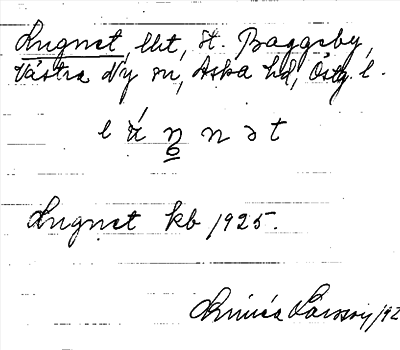 Lugnet, lht, St. Baggeby,
Västra Ny sn, Aska hd, Östg. l.
l ú n n ə t
Lugnet kb 1925.
Larsson, 192